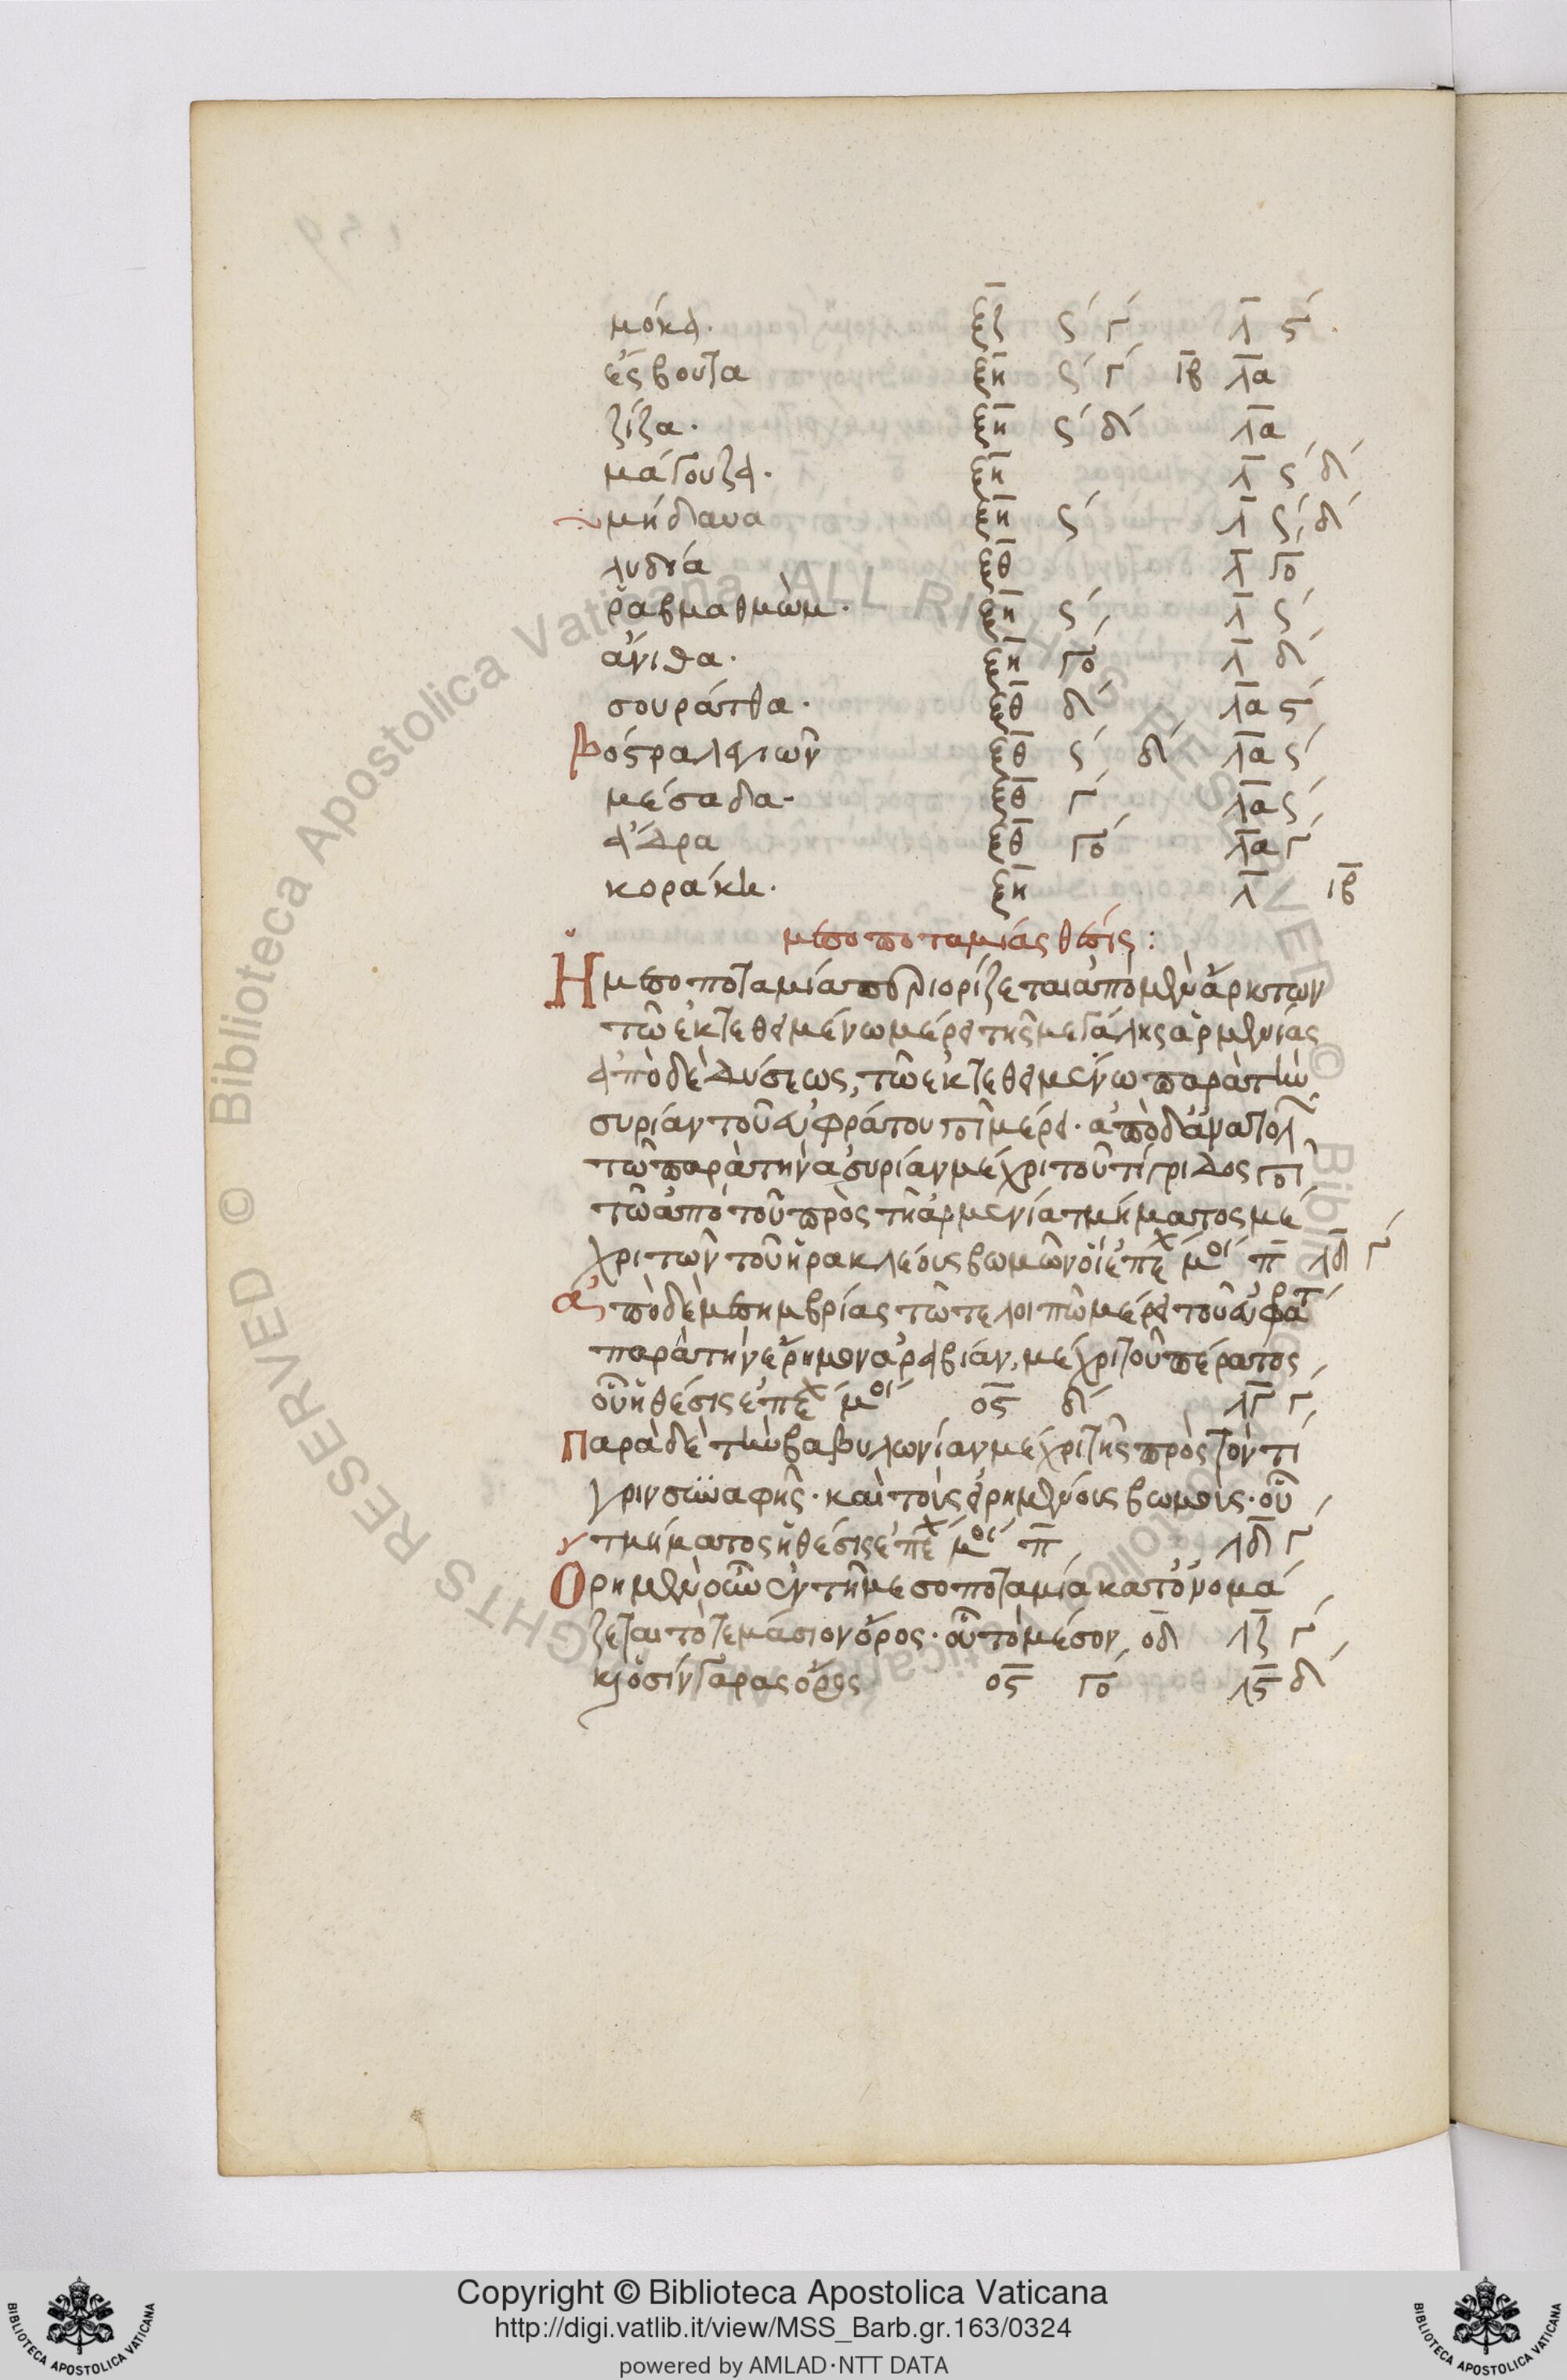 μόκα. ξζ ς΄ γ΄ λ ϛ΄.
ἐς βουτα ξη ς΄ γ΄ ιβ λα
ζίζα. ξη ς΄ δ΄ λα
μάγουζα. ξη λ ς΄ δ΄
μήδαυα ξη ς΄ λ ς΄ δ΄
λυδία ξθ λ γο
ῥαβμαθμὼμ. ξη ς΄ λ ς΄
ἄνιθα. ξη γο΄ λ δ΄
σουράτθα. ξθ δ΄ λα ϛ΄
βόστρα λεγιων ξθ ς΄ δ΄ λα ς΄
μέσαδα. ξθ γ΄ λα ς΄
ἄδρα ξθ γο΄ λα γ΄
κοράκη. ξη λ ιβ
μεσοποταμίας θέσις:
Ἡ μεσοποταμία περιορίζεται ἀπὸ μὲν ἄρκτων
τῶ ἐκτεθειμένω μέρει τῆς μεγάλης ἀρμενίας
ἀπὸ δὲ δύσεως, τῶ ἐκτεθειμένω παρὰ τὴν
συρίαν τοῦ εὐφράτου ποτ μέρει. ἀπὸ δ ἀνατολ
τῶ παρὰ τὴν ἀσυρίαν μέχρι τοῦ τίγριδος ποτ
τῶ ἀπὸ τοῦ πρὸς τῆ ἀρμενία τμήματος μέ
χρι τῶν τοῦ ἡρακλέους βωμῶν οἳ ἐπέχ μοι π λδ γ΄
ἀπὸ δὲ μεσημβρίας τῶ τε λοιπῶ μέρει τοῦ εὐφρατ
παρὰ τὴν ἔρημον ἀραβίαν, μέχρι τοῦ πέρατος
οὗ ἡ θέσις ἐπέχ μοι ος δ΄ λγ γ΄
Παρὰ δὲ τὴν βαβυλωνίαν μέχρι τῆς πρὸς τὸν τί
γριν συναφῆς. καὶ τοὺς εἰρημένους βωμοὺς. οὗ
τμήματος ἡ θέσις ἐπέχ μοι π λδ γ΄
Ὄρη μὲν οὖν ἐν τῆ μεσοποταμία κατονομά
ζεται τό τε μάσιον ὄρος. οὗ τὸ μέσον οδ λζ γ΄
κ ὁ σίνγαρας ὄρος ος γο΄ λϛ δ΄
Copyright © Biblioteca Apostolica Vaticana
http://digi.vatlib.it/view/MSS_Barb.gr.163/0324
powered by AMLAD·NTT DATA